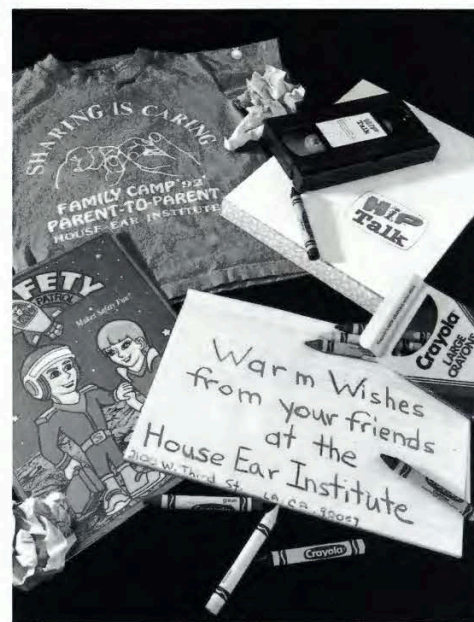 SHARING IS CARING
FAMILY CAMP '93
PARENT-TO-PARENT
HOUSE EAR INSTITUTE
HIP
Talk
HIP
Talk
FETY
PATROL
Makes Safety Fun!
Crayola
LARGE
CRAYONS
Warm Wishes
from your friends
at the
House Ear Institute
2100 W. Third St. LA, CA. 90057
Crayola